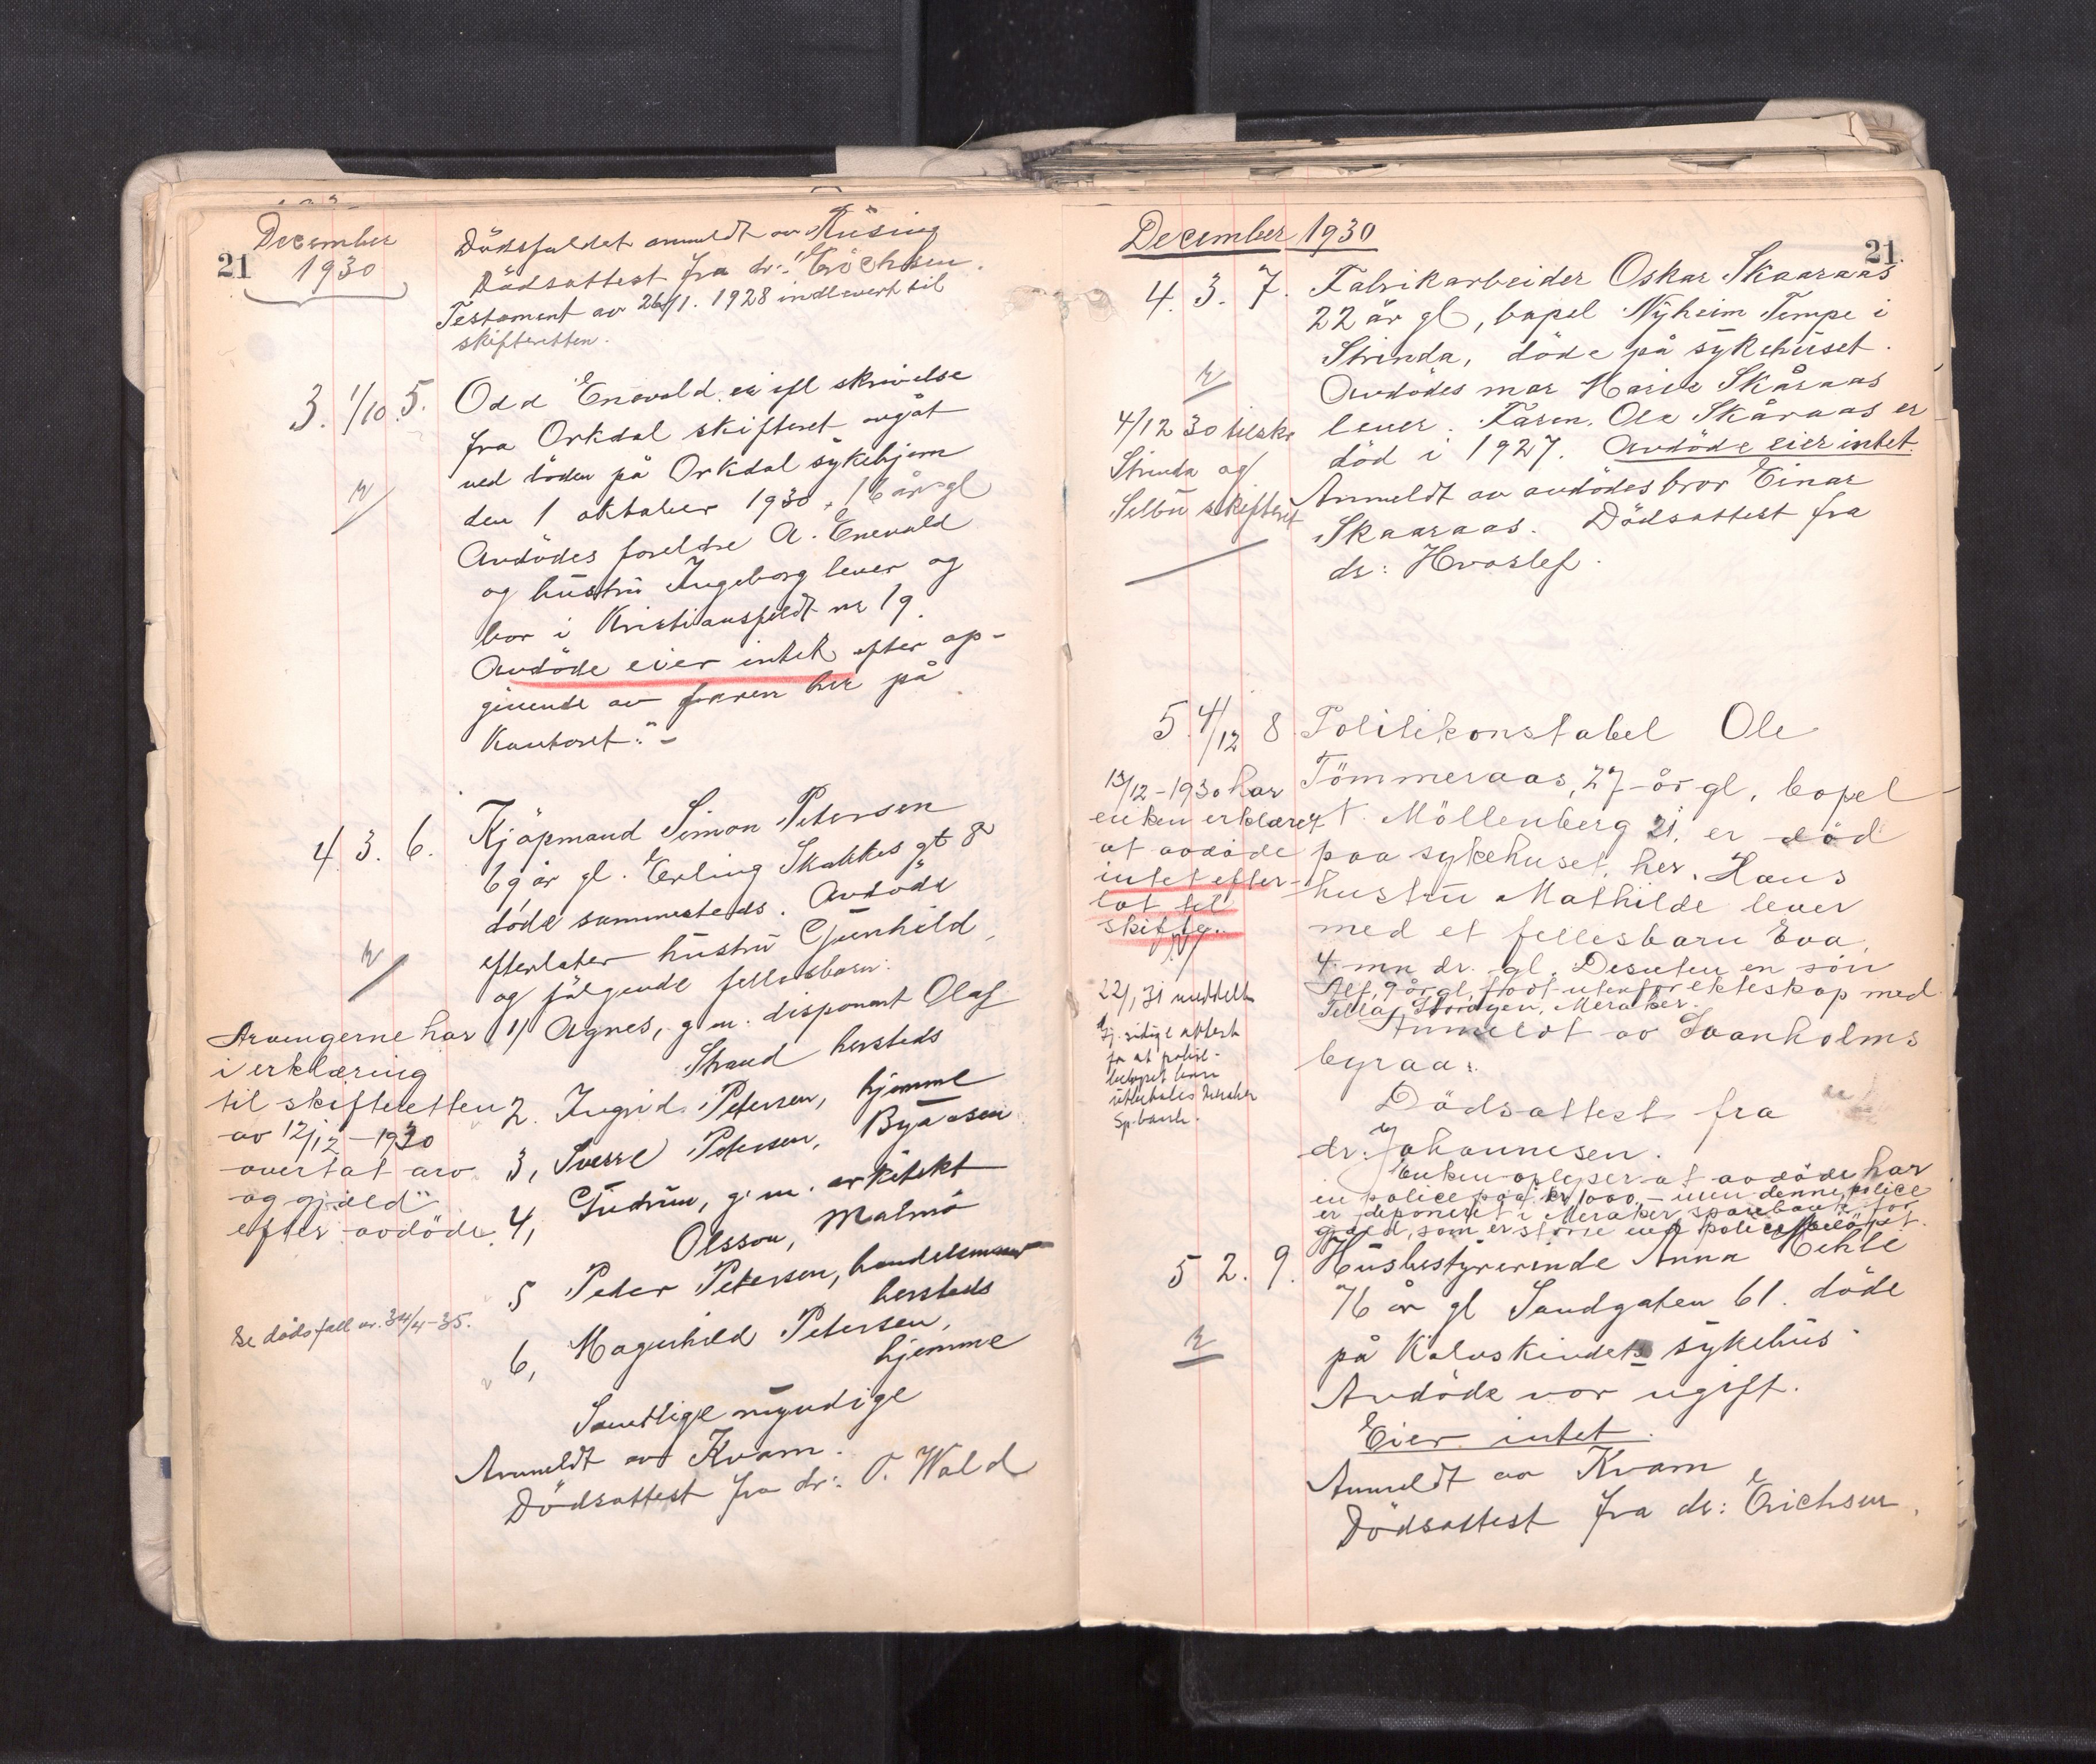 December
21 1930
Dödsfaldet anmeldt av Rüsing
Dödsattest fra dr: Erichsen.
Testament av 26/1. 1928 indlevert til
skifteretten.
3. 1/10 5. Odd Enevald er ifl skrivelse
fra Orkdal skifteret avgåt
ved döden på Orkdal sykehjem
den 1 oktober 1930, 16 år gl
Avdödes foreldre A. Enevald
og hustru Ingeborg lever og
bor i Kristiansfeldt nr 19.
Avdöde eier intet efter op-
givende av faren her på
Kontoret.-
4. 3. 6. Kjöpmand Simon Petersen
69 år gl. Erling Skakkes gt 8
döde sammesteds. Avdöde
efterlater hustru Gunhild
og fölgende fellesbarn:
1) Agnes, g.m. disponent Olaf
Strand hersteds
2. Ingrid Petersen, hjemme
3, Sverre Petersen, Byåsen
4, Gudrun, g.m. arkitekt
Olsson, Malmö
5 Peder Petersen, handelsmann
hersteds
6, Magnhild Petersen,
hjemme
Samtlige myndige
Anmeldt av Kvam.
Dödsattest fra dr: O. Wald
Arvingerne har
i erklæring
til skifteretten
av 12/12-1930
overtat arv
og gjæld
efter avdöde.
Se dödsfall nr. 34/4-35.
December 1930
21
4. 3. 7. Fabrikarbeider Oskar Skaaraas
22 år gl, bopel Nyheim Tempe i
Strinda, döde på sykehuset.
Avdödes mor Marie Skåraas
lever. Faren Ole Skåraas er
död i 1927. Avdöde eier intet.
Anmeldt av avdödes bror Einar
Skaaraas. Dödsattest fra
dr: Hvoslef.
4/12 30 tilskr
Strinda og
Selbu skifteret
5. 4/12 8. Politikonstabel Ole
Tömmeraas, 27 år gl, bopel
N. Möllenberg 21, er död
paa sykehuset her. Hans
hustru Mathilde lever
med et fellesbarn Eva,
4 mndr. gl. Desuten en sön
Alf, 9 år gl, födt utenfor ekteskap med
Anmeldt av Svanholms
byraa.
Dödsattest fra
dr. Johannesen.
Enken oplyser at avdöde har
en police paa kr 1000,- men denne police
er deponeret i Meraker sparebank for
gjæld, som er större end policebelöpet.
13/12-1930 har
enken erklæret
at avdöde
intet efter-
lot til
skifte.
22/1 31 meddelt
attest
for at
utbetales Meraker
Sp.bank.
5 2. 9. Husbestyrerinde Anna
76 år gl Sandgaten 61. döde
på Kalvskindets sykehus
Avdöde var ugift.
Eier intet.
Anmeldt av Kvam
Dödsattest fra dr: Erichsen.